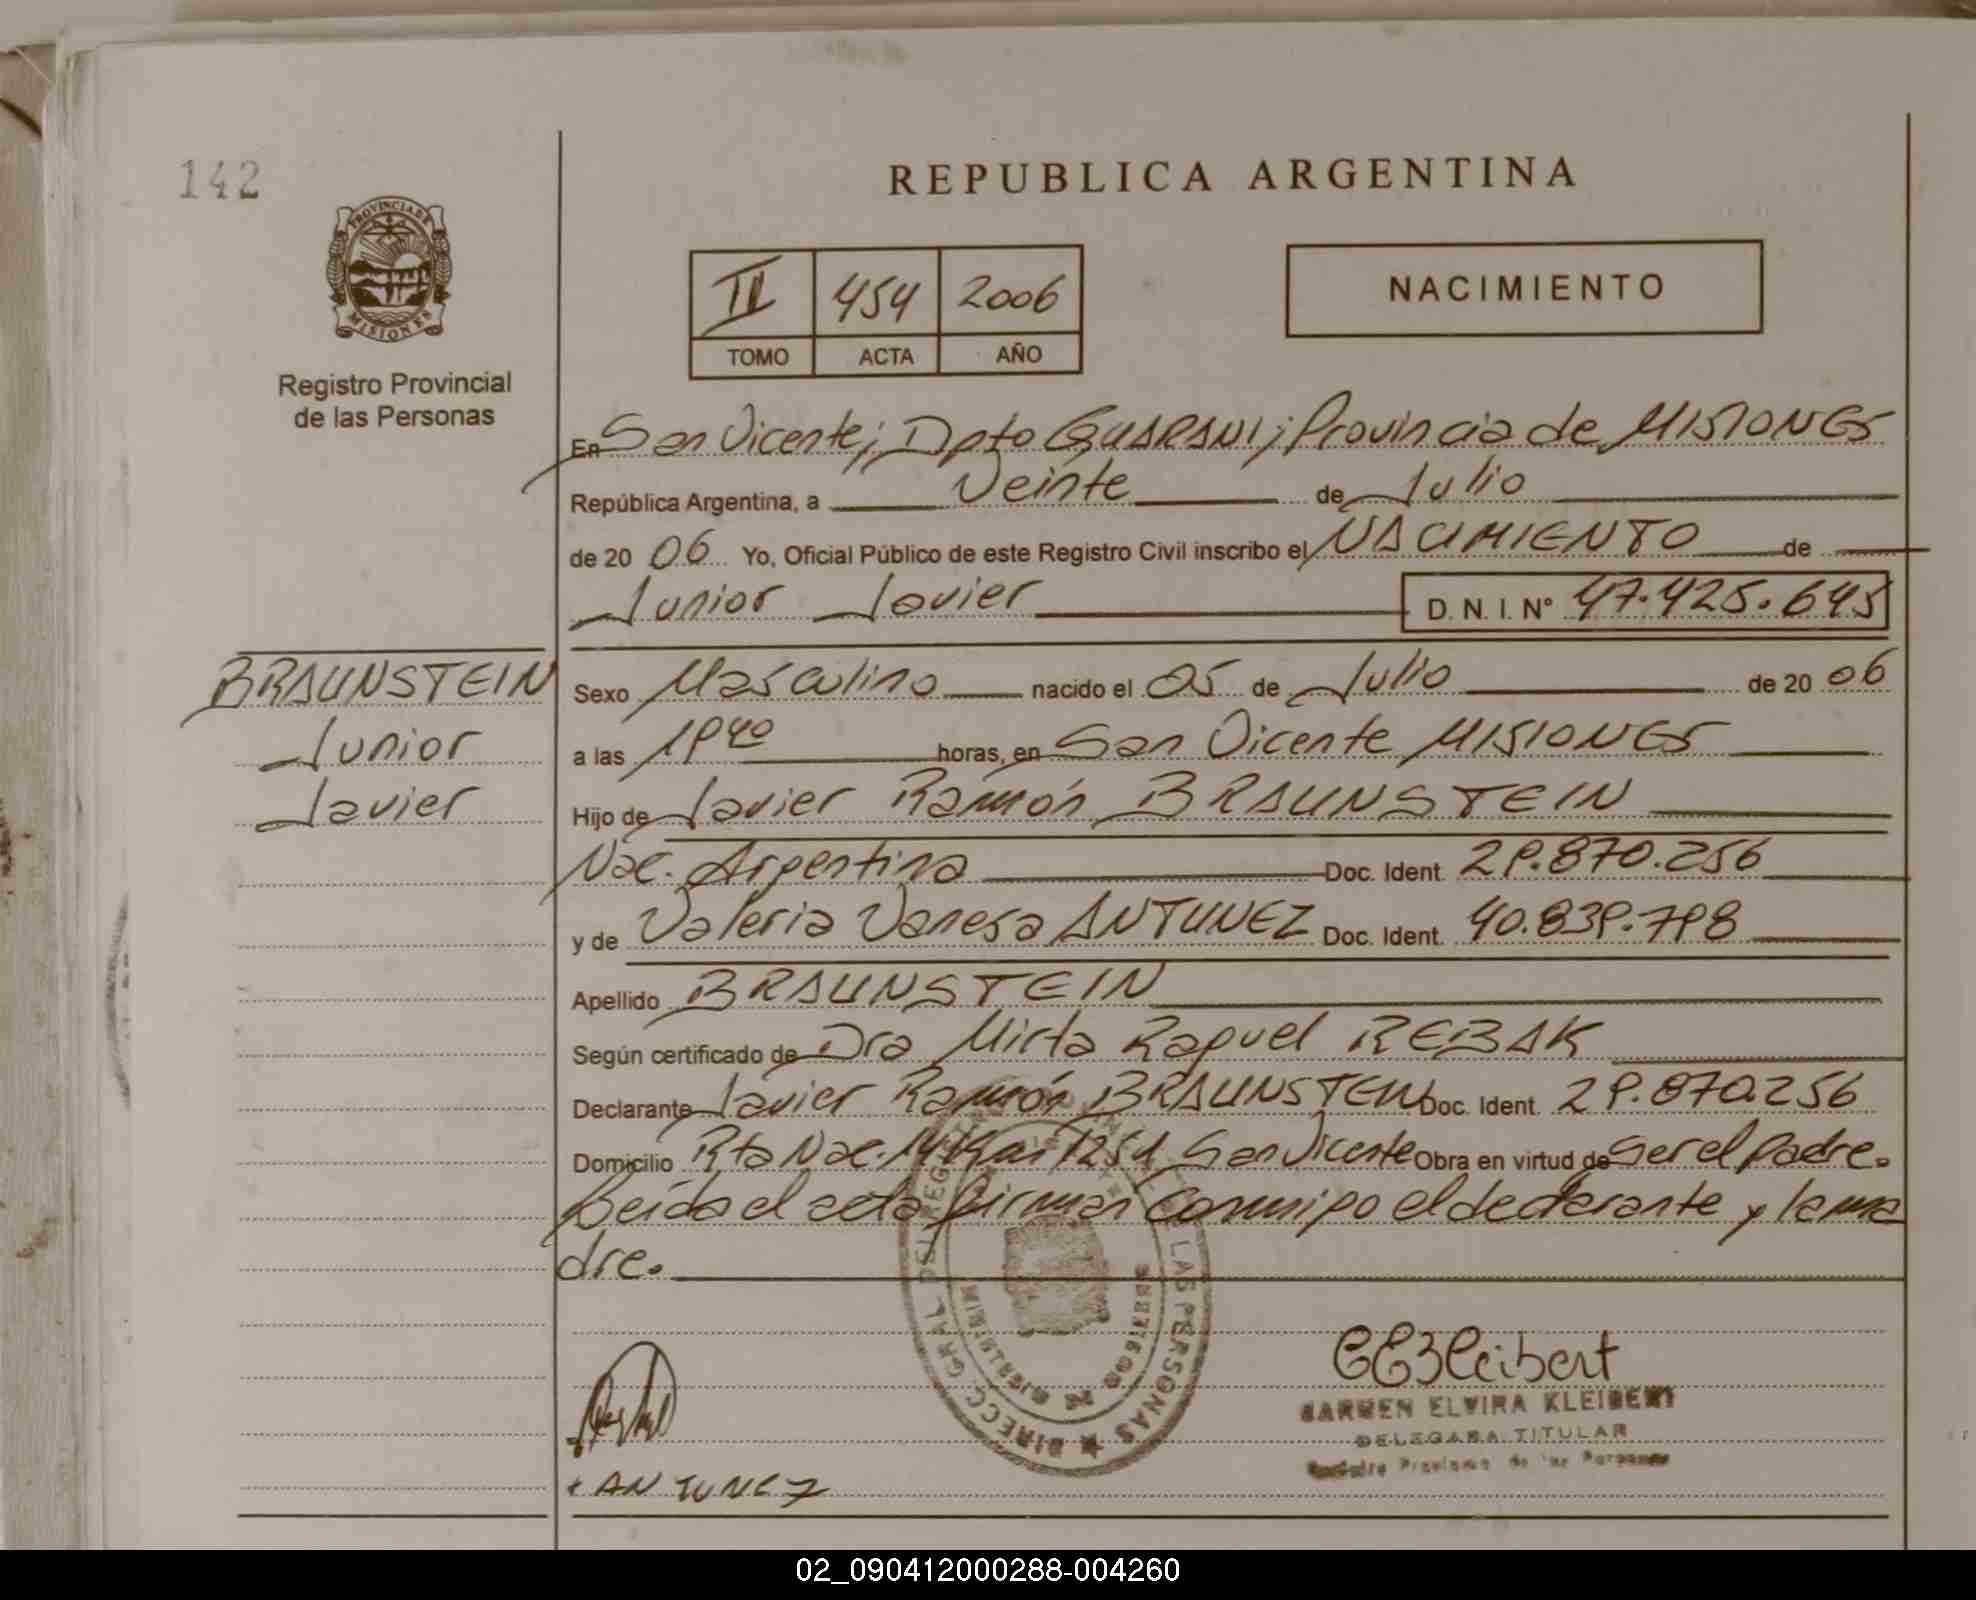 142
REPUBLICA ARGENTINA
PROVINCIA DE
MISIONES
Registro Provincial
de las Personas
II 454 2006
TOMO ACTA AÑO
NACIMIENTO
En San Vicente; Dpto GUARANI; Provincia de MISIONES
República Argentina, a Veinte de Julio
de 20 06 Yo, Oficial Público de este Registro Civil inscribo el NACIMIENTO de
Junior Javier D. N. I. N° 47.425.645
BRAUNSTEIN
Junior
Javier
Sexo Masculino nacido el 05 de Julio de 20 06
a las 19 40 horas, en San Vicente MISIONES
Hijo de Javier Ramón BRAUNSTEIN
Nac. Argentina Doc. Ident. 29.870.256
y de Valeria Vanesa ANTUNEZ Doc. Ident. 40.839.798
Apellido BRAUNSTEIN
Según certificado de Dra Mirta Raquel REBAK
Declarante Javier Ramón BRAUNSTEIN Doc. Ident. 29.870.256
Domicilio Rta Nac. 14 Km 1251 San Vicente Obra en virtud de ser el padre.
Leída el acta firman conmigo el declarante y la ma
dre.
DIRECC. GRAL. DEL REG. LAS PERSONAS
CEKleibert
CARMEN ELVIRA KLEIBERT
DELEGADA TITULAR
Registro Provincial de las Personas
+ ANTUNEZ
02_090412000288-004260